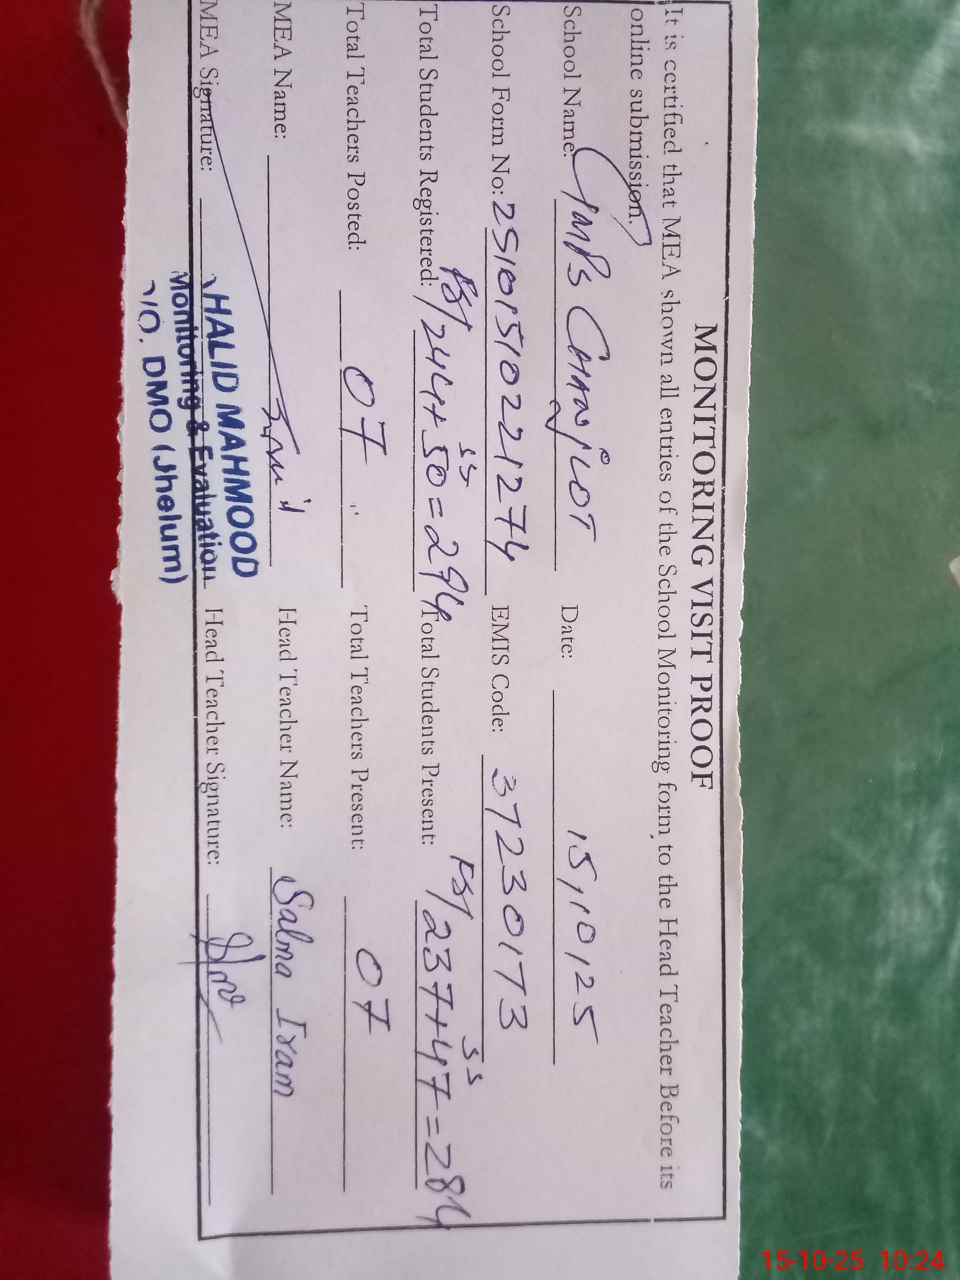 MONITORING VISIT PROOF
It is certified that MEA shown all entries of the School Monitoring form to the Head Teacher Before its
online submission.
School Name: GMPS Date: 15/10/25
School Form No: 2510151022121274 EMIS Code: 37230173
Total Students Registered: PS/244+50 SS=294 Total Students Present: PS/237+47 SS=284
Total Teachers Posted: 07 Total Teachers Present: 07
MEA Name: Head Teacher Name: Salma Iram
MEA Signature: Head Teacher Signature:
HALID MAHMOOD
Monitoring & Evaluation
DMO (Jhelum)
15-10-25 10:24